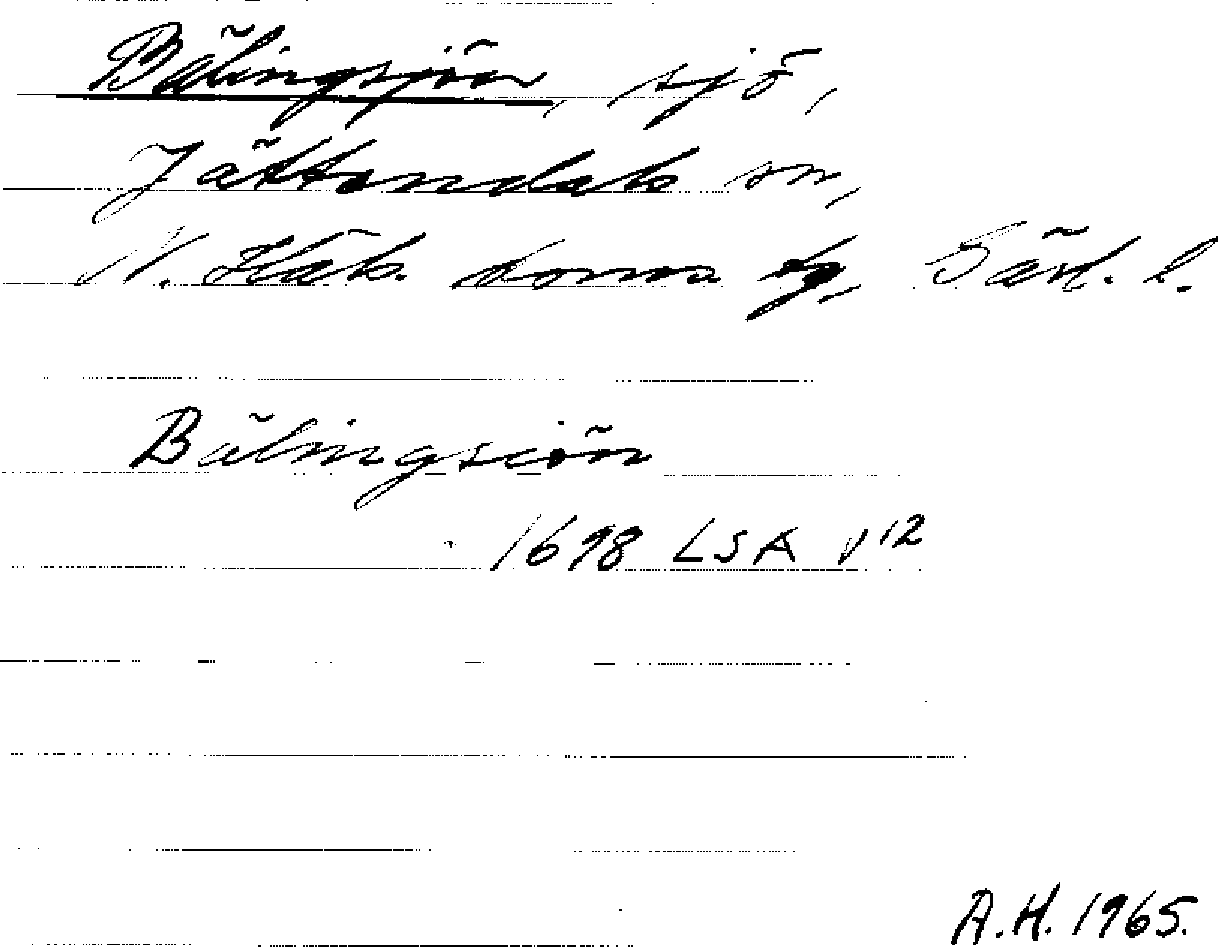 Bälingsjön, sjö,
Jättendals sn,
N. Häls. doms hg, Gävl. l.
Bälingsiön
1698 LSA V 12
A.H. 1965.